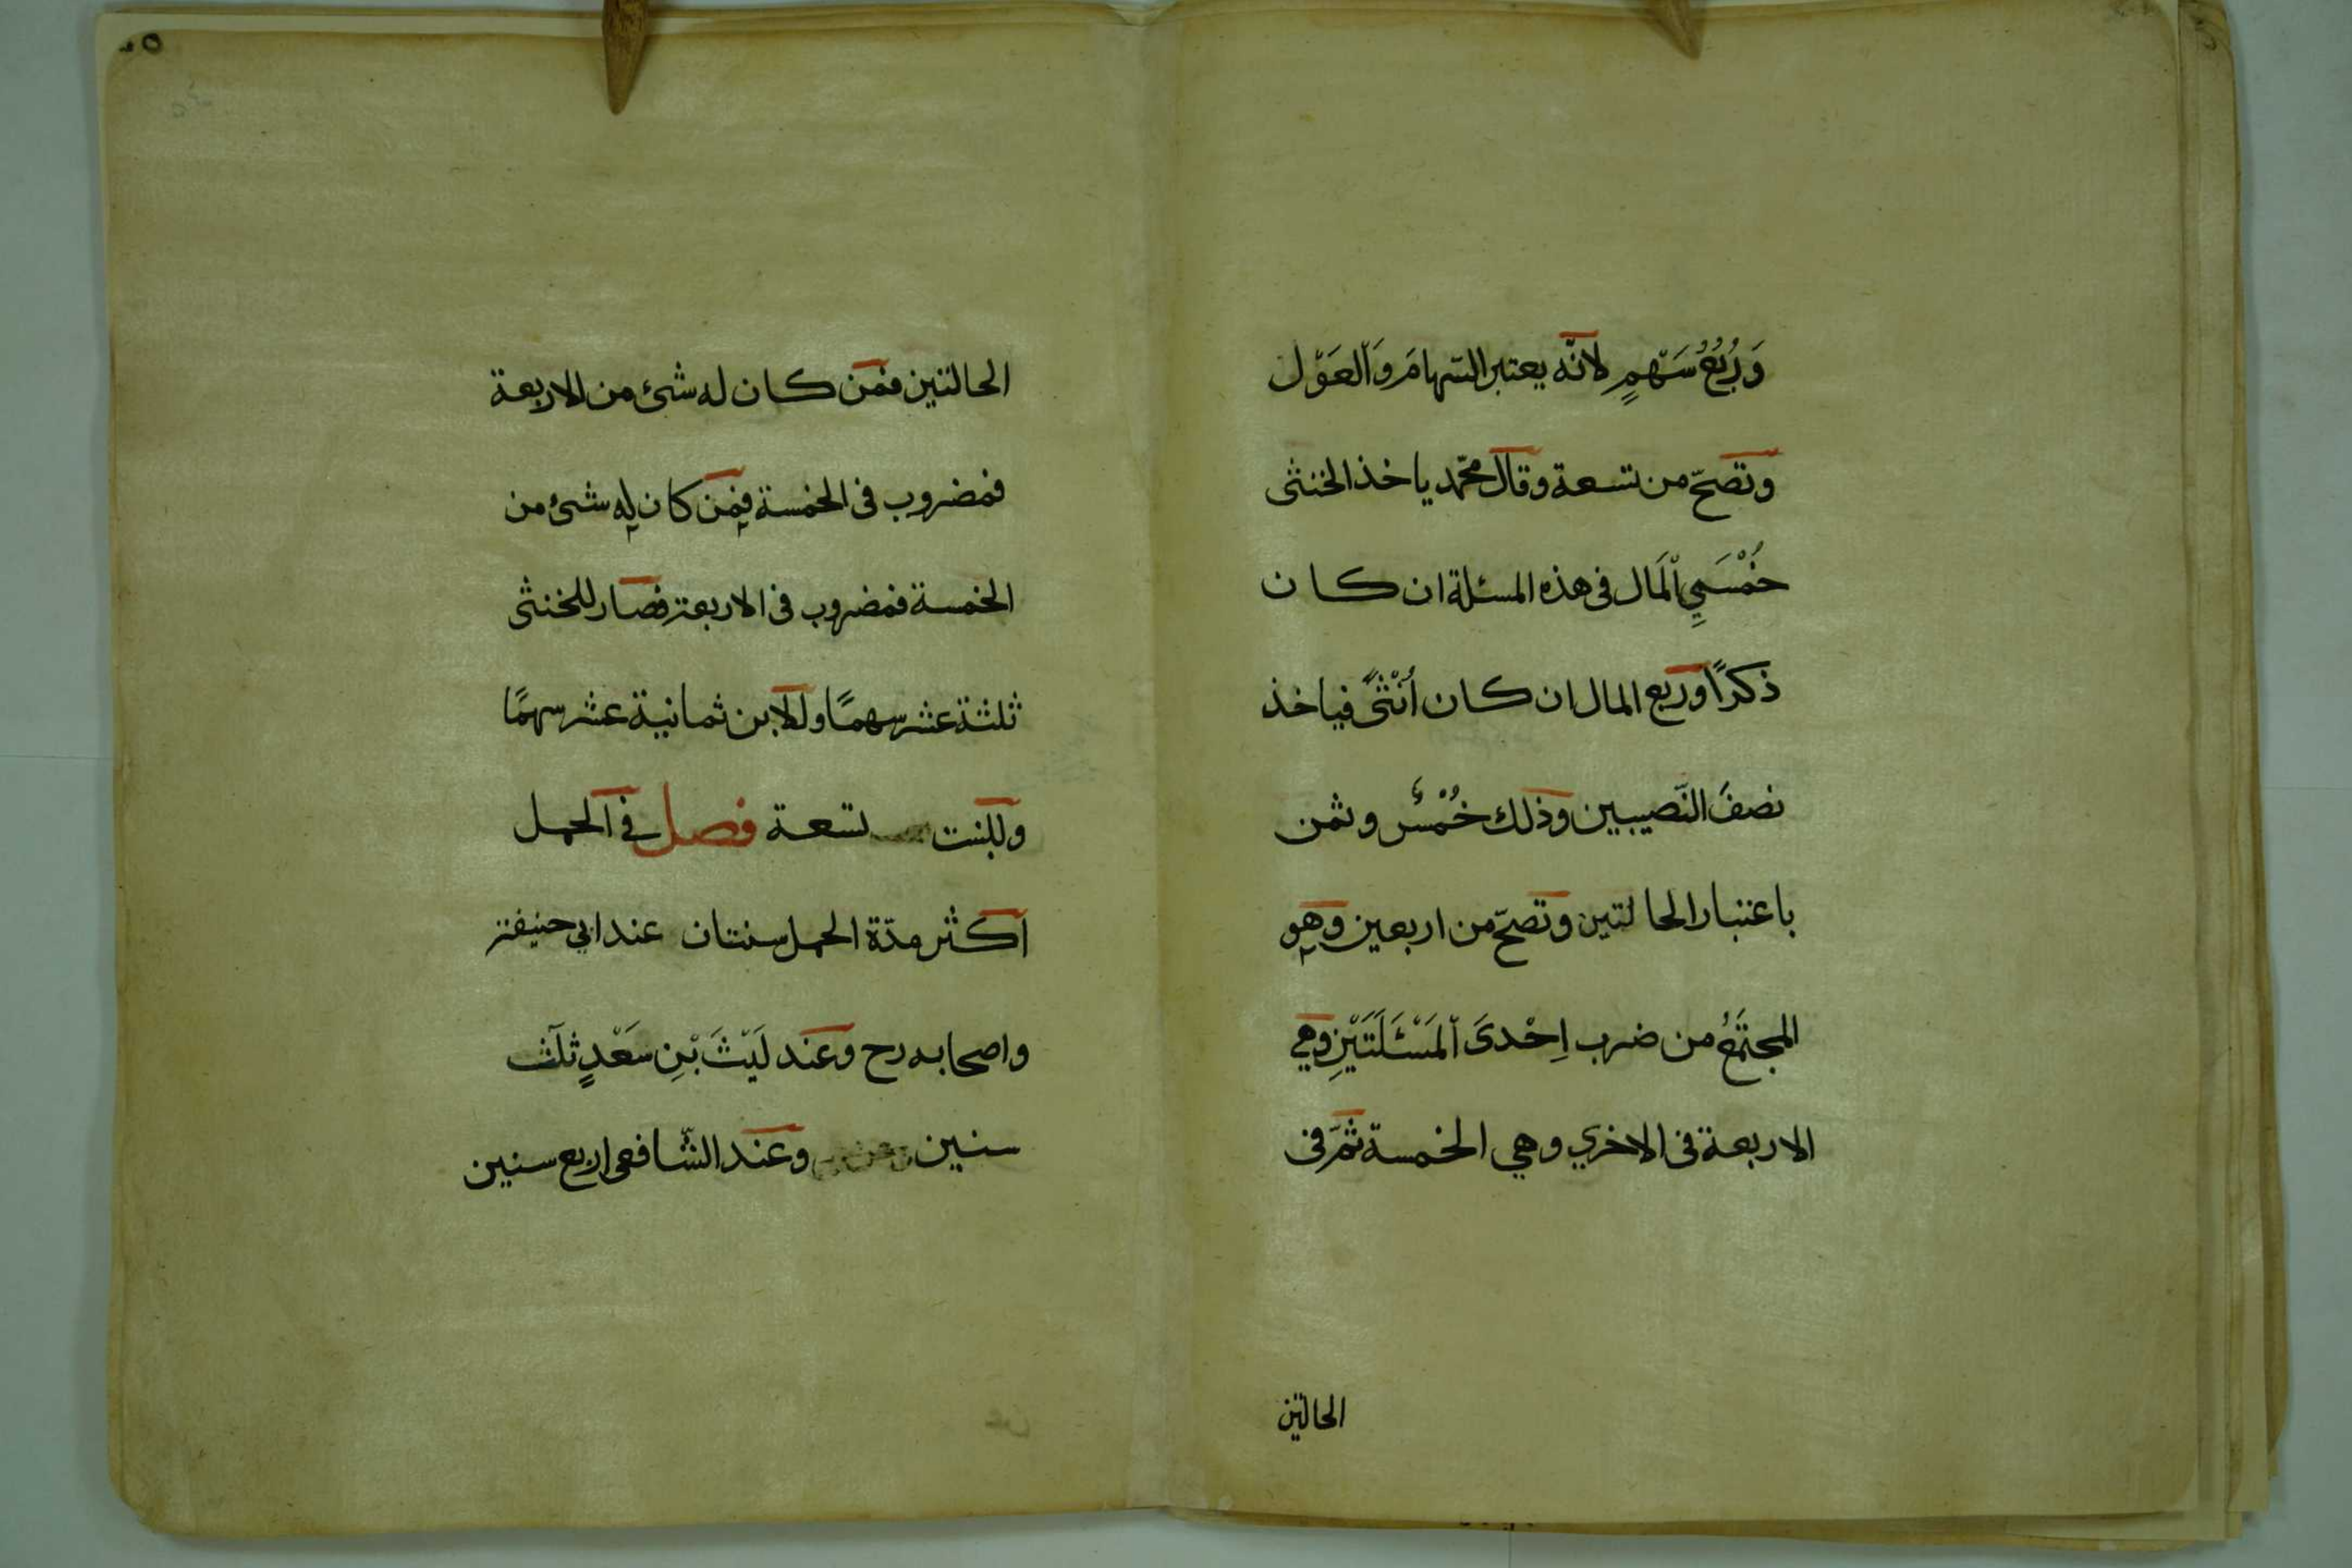 وَرُبُعُ سَهْمٍ لانّه يعتبر السّهامَ وَالعَوْل
وتصحّ من تسعة وقال محمّد ياخذ الخنثى
خُمْسَيِ اْلمَال فى هذه المسئلة ان كان
ذكرًا وربع المال ان كان أُنْثىً فياخذ
نصفَ النَّصيبين وذلك خُمْسٌ وثمن
باعتبار الحالتين وتصحّ من اربعين وهو
المجتَمَعُ من ضرب اِحْدىَ اْلمَسْئَلَتَيْنِ وهي
الاربعة فى الاخري وهي الخمسة ثمّ فى
الحالتين
الحالتين فمن كان له شئ من الاربعة
فمضروب فى الخمسة فمن كان له شئ من
الخمسة فمضروب فى الاربعة فصار للخنثى
ثلثة عشر سهمًا وللابن ثمانية عشر سهمًا
وللبنت تسعة فصل في الحمل
اكثر مدّة الحمل سنتان عند ابي حنيفة
واصحابه رح وعند لَيْثَ بْنِ سَعْدٍ ثلٰث
سنين وعند الشّافعى اربع سنين